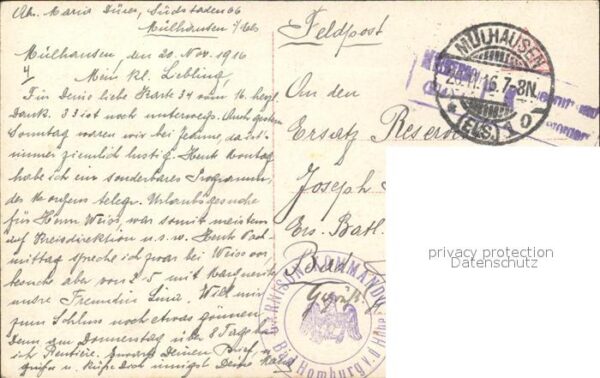 Ab. Maria Dürr, Südstaden 66
Mülhausen i/Els
Mülhausen, den 20. Nov. 1916
Mein kl. Liebling,
Für Deine liebe Karte 34 vom 16. herzl.
Dank. 33 ist noch unterwegs. Auch gestern
Sonntag waren wir bei Jeanne, da ist
immer ziemlich lustig. Heut Montag
habe ich ein sonderbares Programm,
des Morgens telegr. Urlaubsgesuche
für Herrn Weiss, war somit meistens
auf Kreisdirektion u.s.w. Heut Nach
mittag spreche ich zwar bei Weiss vor
besuche aber von 2-5 mit Marguerite
unsre Freundin Lina. Will mir
zum Schluss noch etwas gönnen
Denn am Donnerstag über 8 Tage bin
ich Rentière. Erwarte Deinen Brief
grüße u. küsse Dich innigst Deine Maria
Feldpost
MÜLHAUSEN
20.11.16.7-8N.
(ELS.) 1 o
An den
Ersatz Reservist
Joseph
Ers. Batl.
Bad
GARNISON-KOMMANDO
Bad Homburg v. d. Höhe
privacy protection
Datenschutz